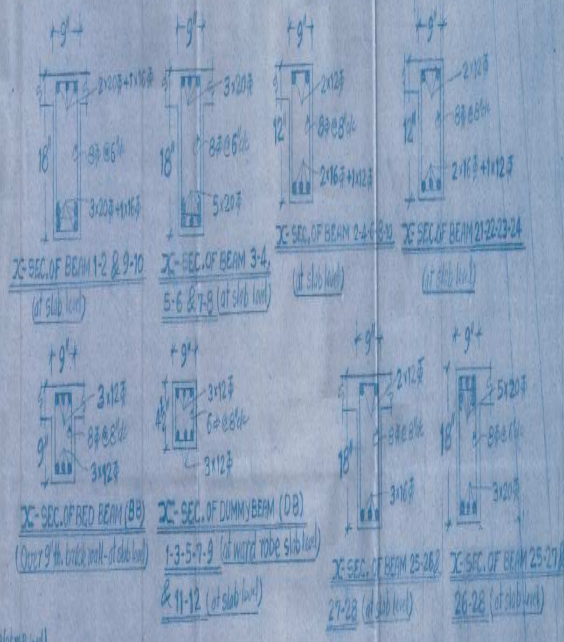 9"
2x20Φ+1x16Φ
18"
8Φ@6"c/c
3x20Φ+1x16Φ
X-SEC. OF BEAM 1-2 & 9-10
(at slab level)
9"
3x20Φ
18"
8Φ@6"c/c
5x20Φ
X-SEC. OF BEAM 3-4,
5-6 & 7-8 (at slab level)
9"
2x12Φ
12"
8Φ@8"c/c
2x16Φ+1x12Φ
X-SEC. OF BEAM 2-4-6-8-10
(at slab level)
9"
2x12Φ
12"
8Φ@8"c/c
2x16Φ+1x12Φ
X-SEC. OF BEAM 21-22-23-24
(at slab level)
9"
3x12Φ
9"
8Φ@8"c/c
3x12Φ
X-SEC. OF BED BEAM (BB)
(Over 9"th. brick wall-at slab level)
9"
3x12Φ
4½"
6Φ@8"c/c
3x12Φ
X-SEC. OF DUMMY BEAM (DB)
1-3-5-7-9 (at ward robe slab level)
& 11-12 (at slab level)
9"
2x12Φ
18"
8Φ@8"c/c
3x16Φ
X-SEC. OF BEAM 25-26 &
27-28 (at slab level)
9"
5x20Φ
18"
8Φ@6"c/c
3x20Φ
X-SEC. OF BEAM 25-27 &
26-28 (at slab level)